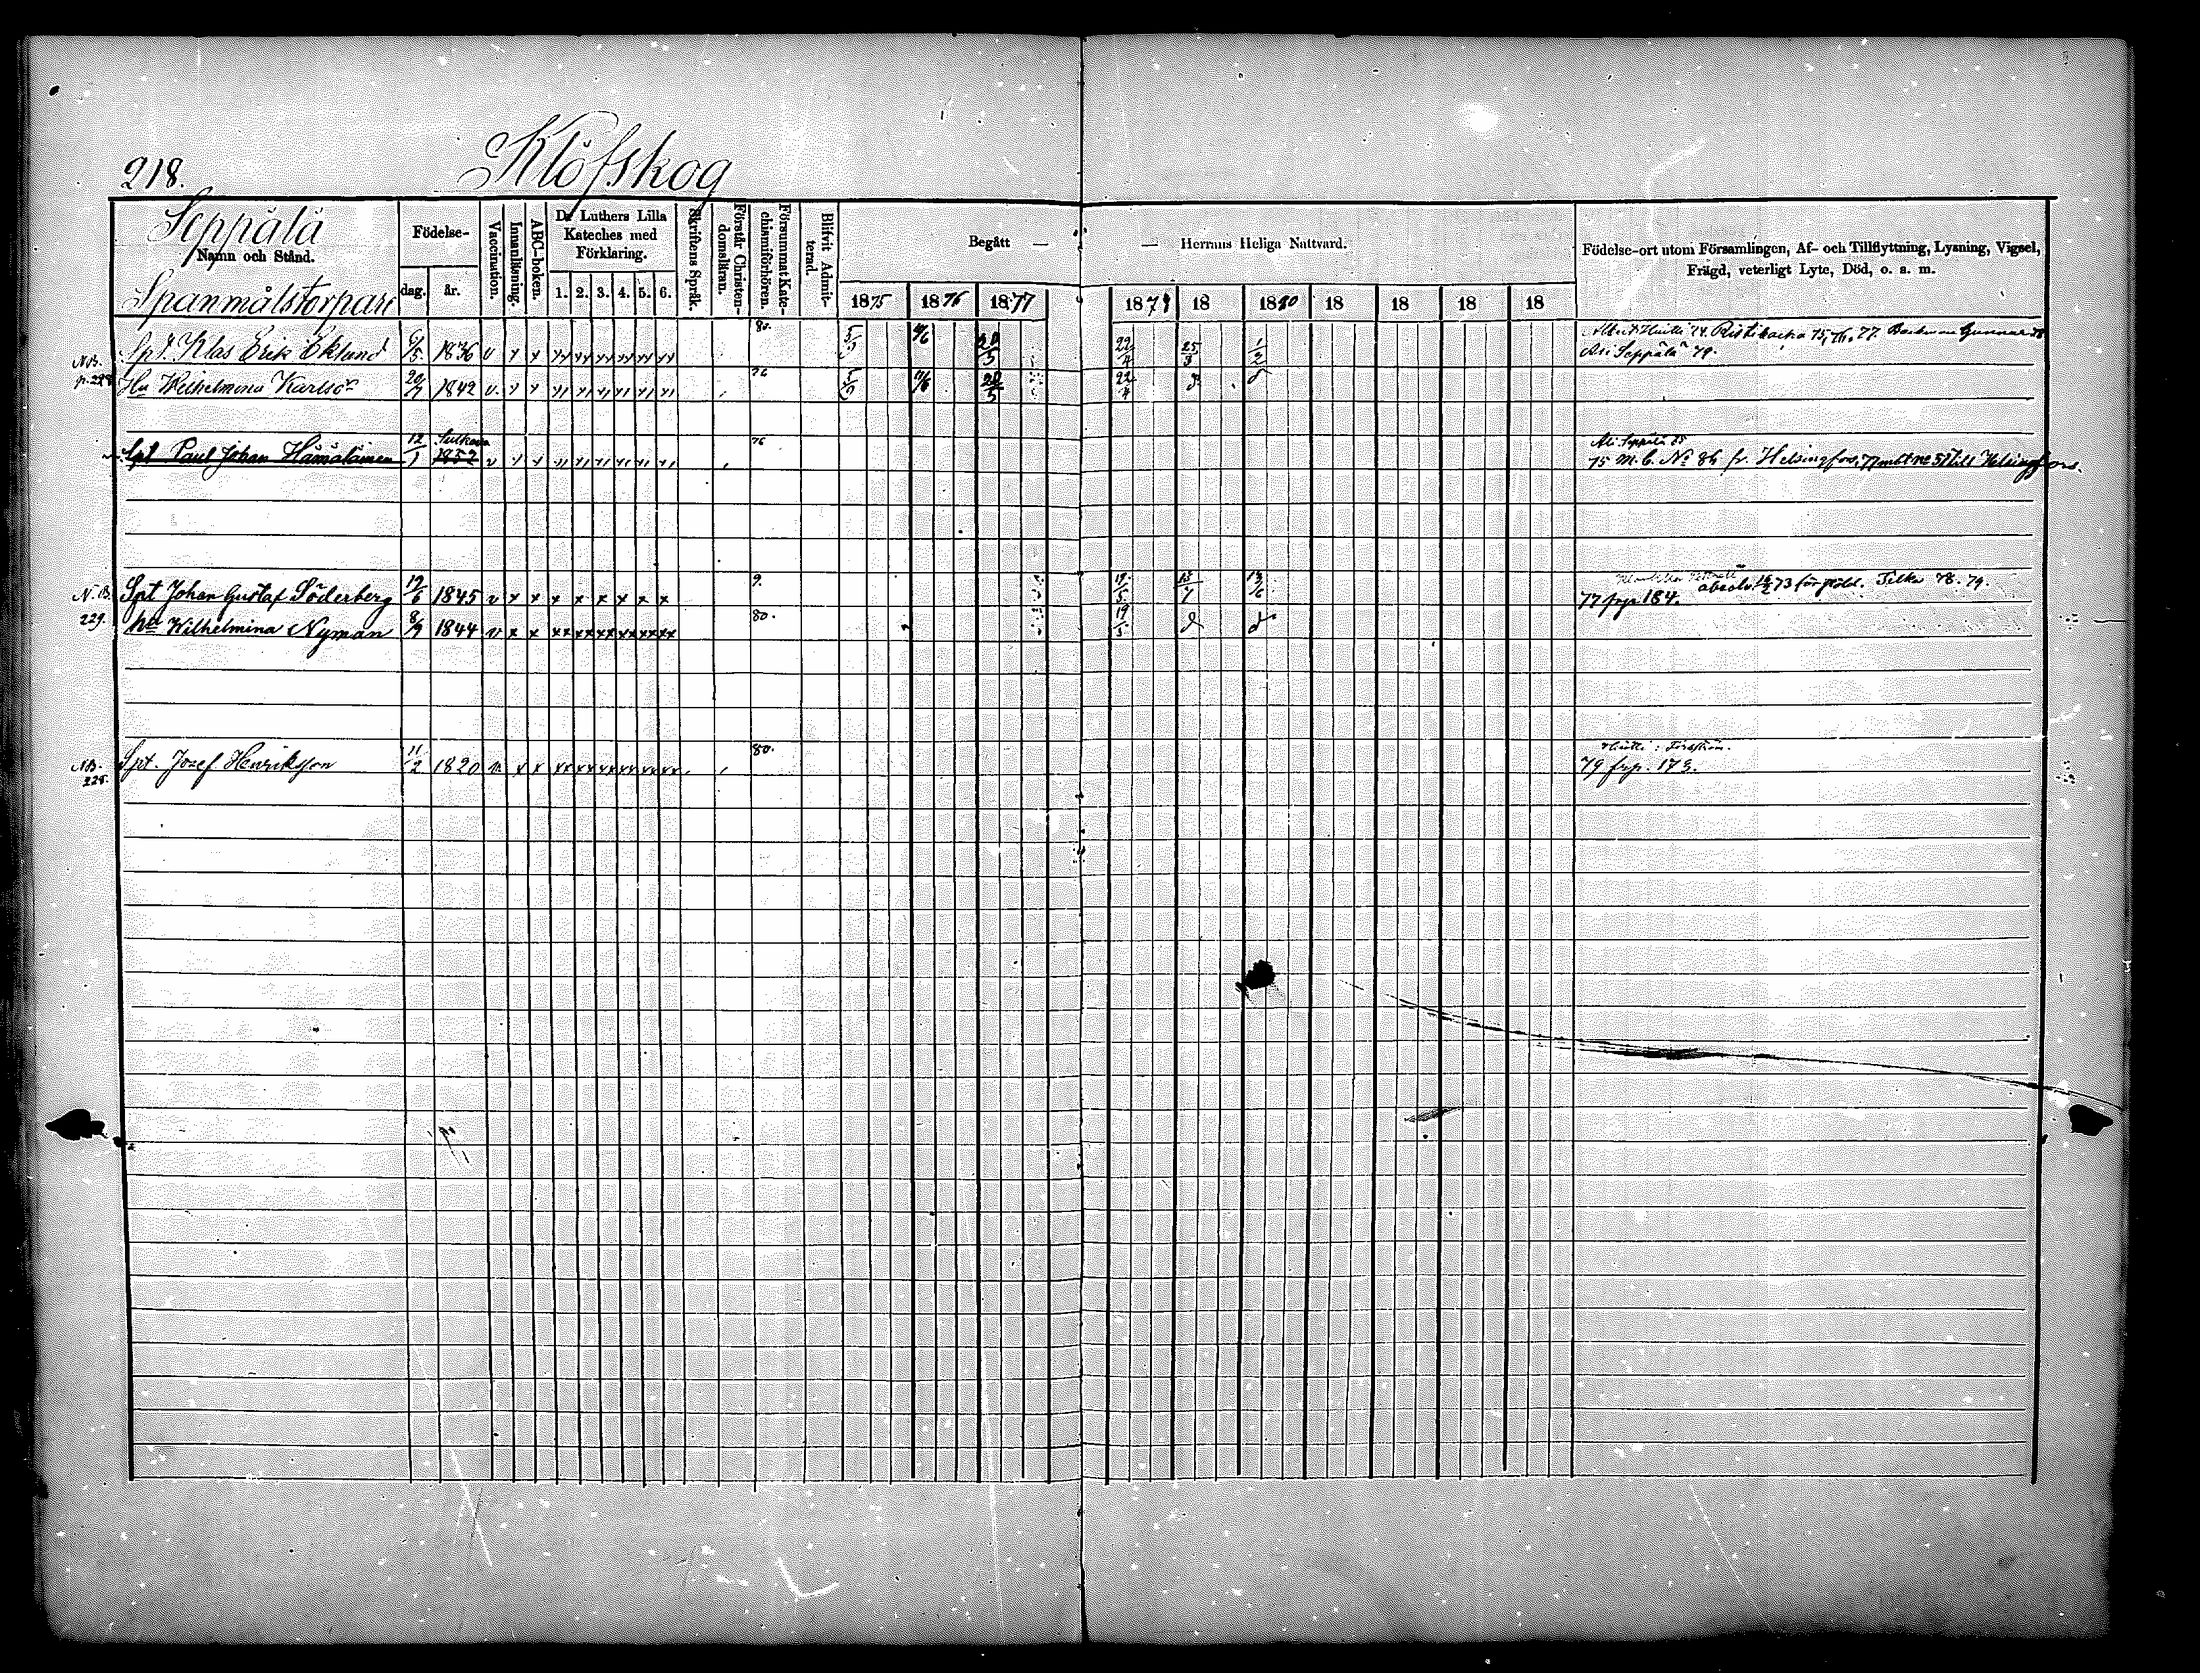 218.
Klöfskog
Seppälä
Namn och Stånd.
Spanmålstorpare
Födelse-
dag. år.
Vaccination.
Innanläsning.
ABC-boken.
D:r Luthers Lilla
Kateches med
Förklaring.
1. 2. 3. 4. 5. 6.
Skriftens Språk.
Förstår Christen-
domsläran.
Försummat Kate-
chismiförhören.
Blifvit Admit-
terad.
Begått —
1875 1876 1877
— Herrans Heliga Nattvard.
1879 18 1880 18 18 18 18
Födelse-ort utom Församlingen, Af- och Tillflyttning, Lysning, Vigsel,
Frägd, veterligt Lyte, Död, o. s. m.
Spt. Klas Erik Eklund 6/5 1836 v x x 80. 5/5 4/6 20/5 22/4 25/3 1/2 Ristibacka 75, 76, 77. Gunnar 78
Ali Seppälä 79.
NB.
p. 228
Hu Wilhelmina Karlsdr 20/7 1842 v. x x 76 5/5 4/6 20/5 22/4
Sulkava
Spt Paul Johan Hämäläinen 12/1 1852 v x x 76 Ali Seppälä 75
75 M. b. No 86 fr. Helsingfors, 77 mbt no 51 till Helsingfors.
N.B. Spt Johan Gustaf Söderberg 19/6 1845 v x x x x x x x x 9. 19/5 13/6 absolv. 73 för stöld. Tilka 78. 79.
77 frp 184.
229. Hu Wilhelmina Nyman 8/9 1844 v x x xx xx xx xx xx xx 80. 19/5
NB.
228.
Spt. Josef Henriksson 11/2 1820 v. x x xx xx xx xx xx xx 80.
79 frp. 173.